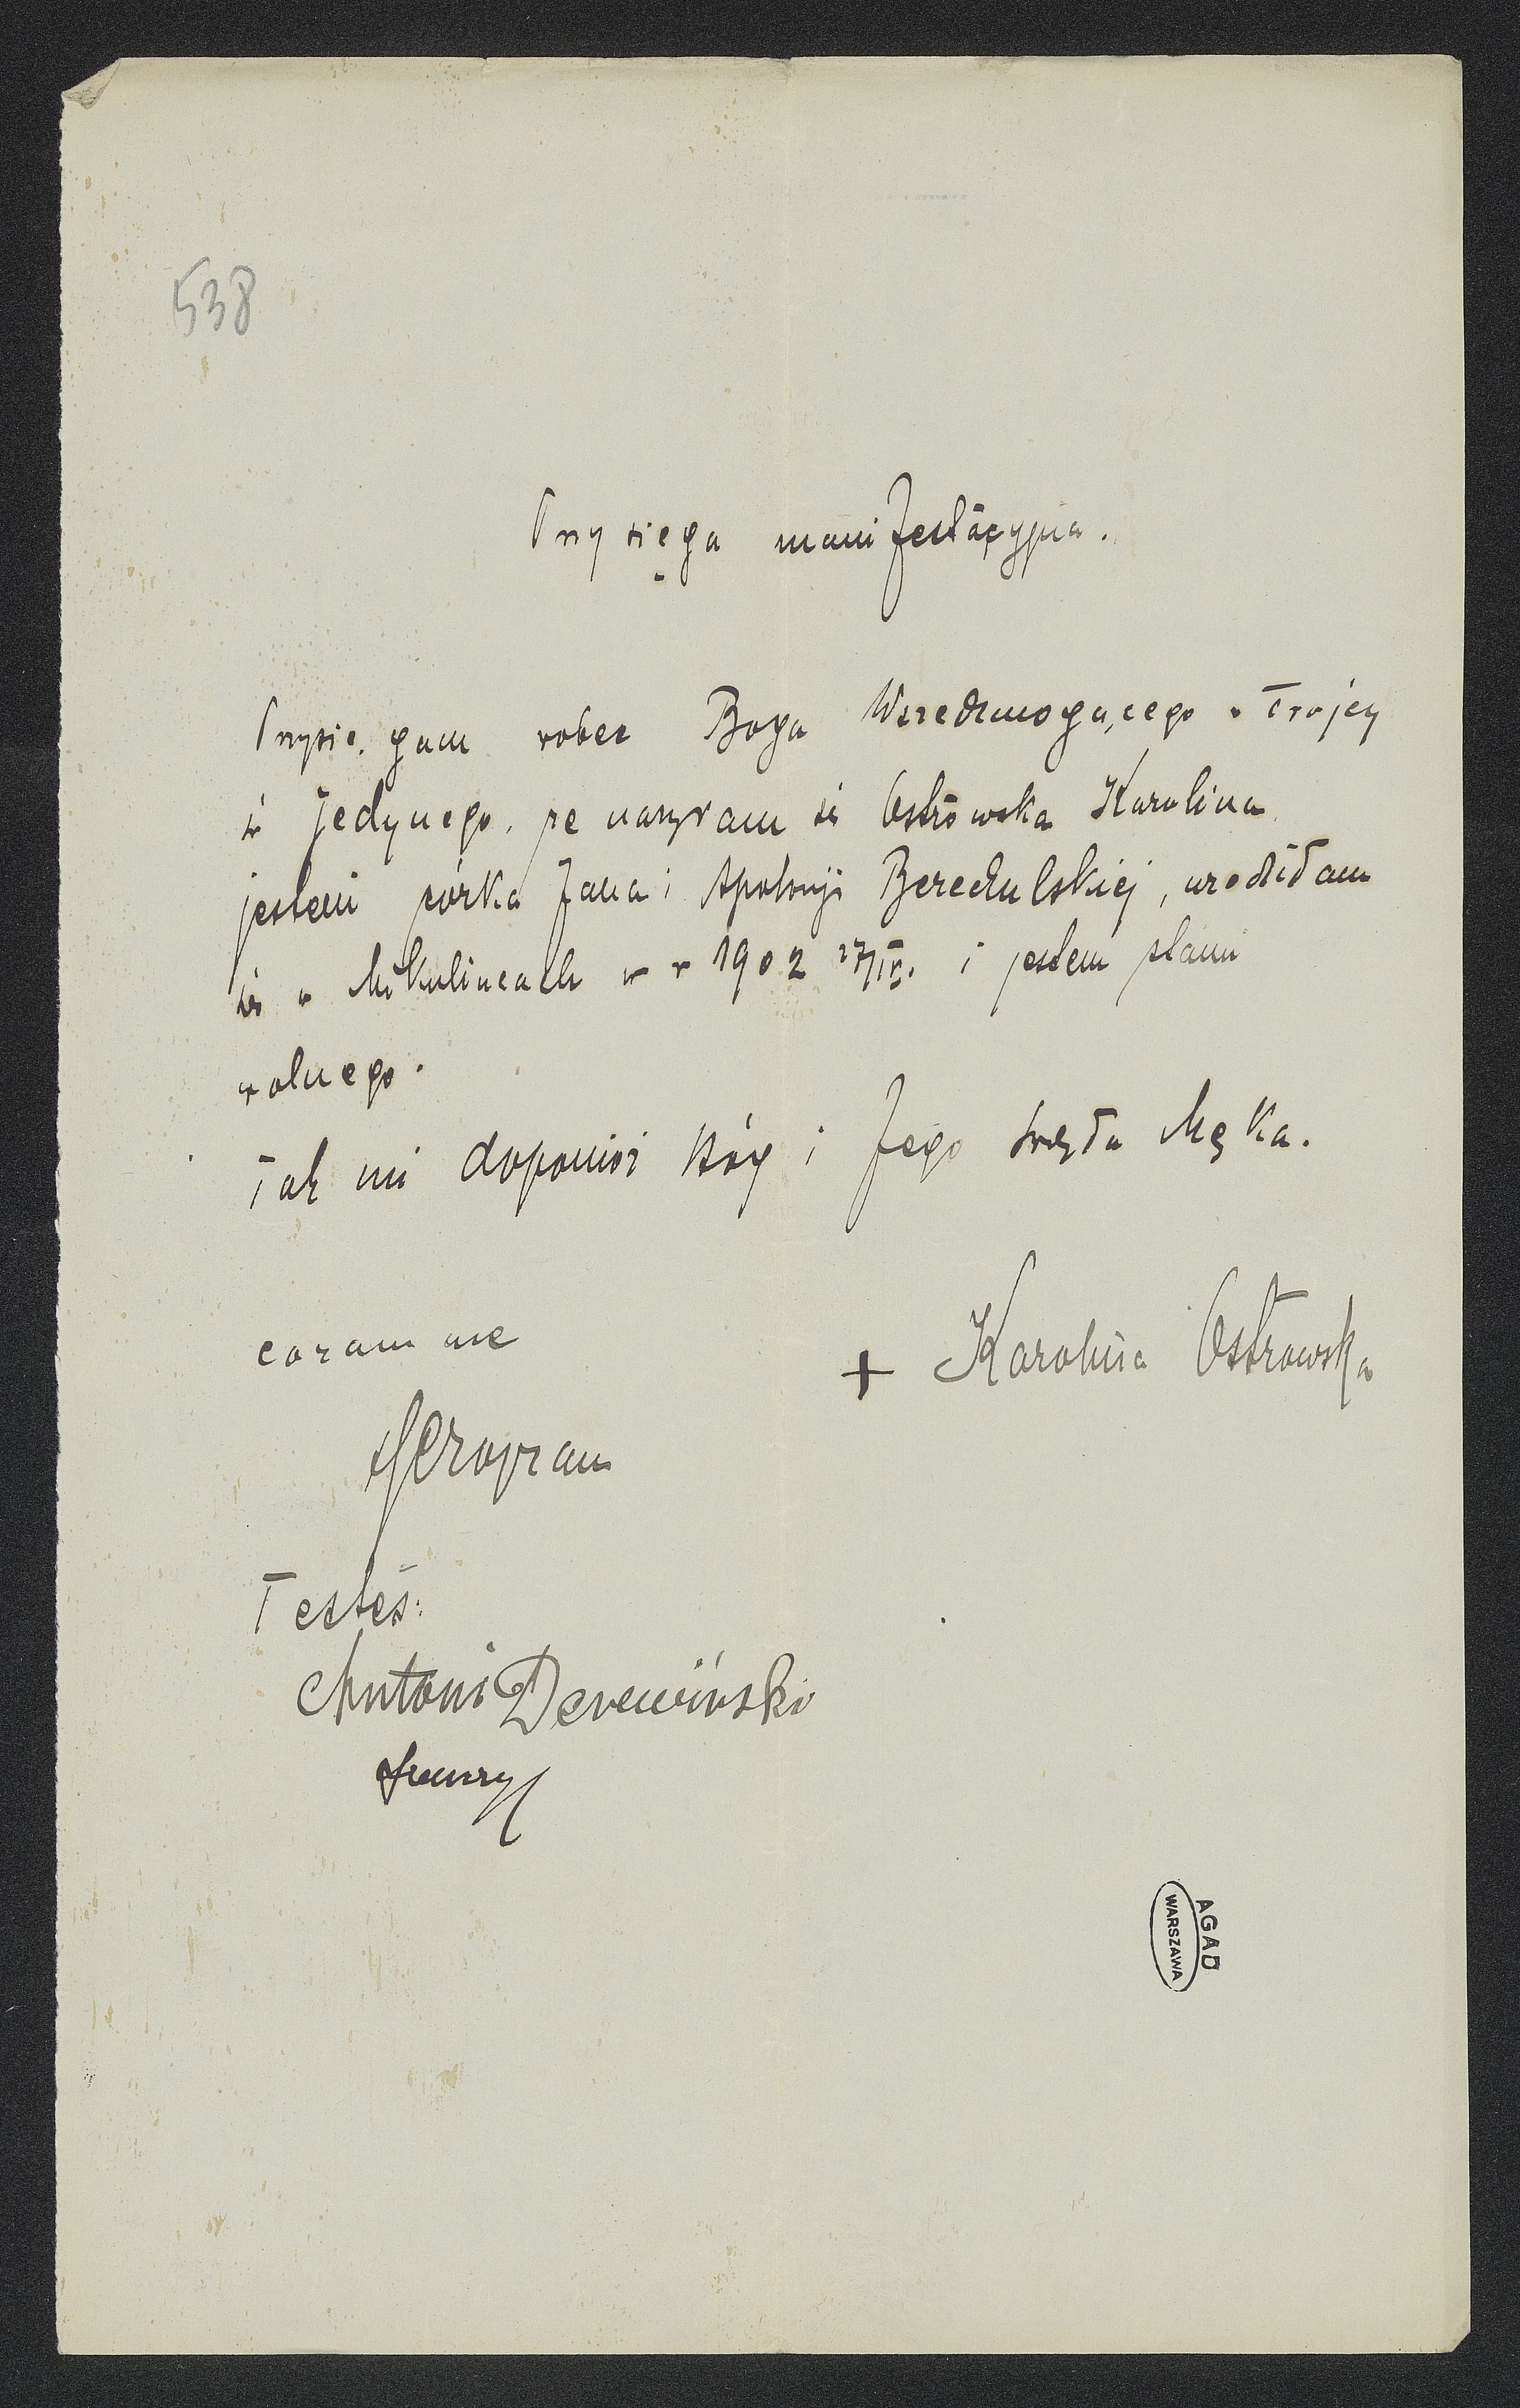 538
Przysięga manifestacyjna.
Przysięgam wobec Boga Wszechmogącego w Trójcy
św Jedynego, że nazywam się Ostrowska Karolina
jestem córka Jana i Apolonji Berechulskiej, urodziłam
się w Mikulincach w r 1902 27/IV. i jestem stanu
wolnego.
Tak mi dopomóż Bóg i Jego święta Męka.
coram me
+ Karolina Ostrowska
Testes:
Antoni Derewiński
AGAD
WARSZAWA